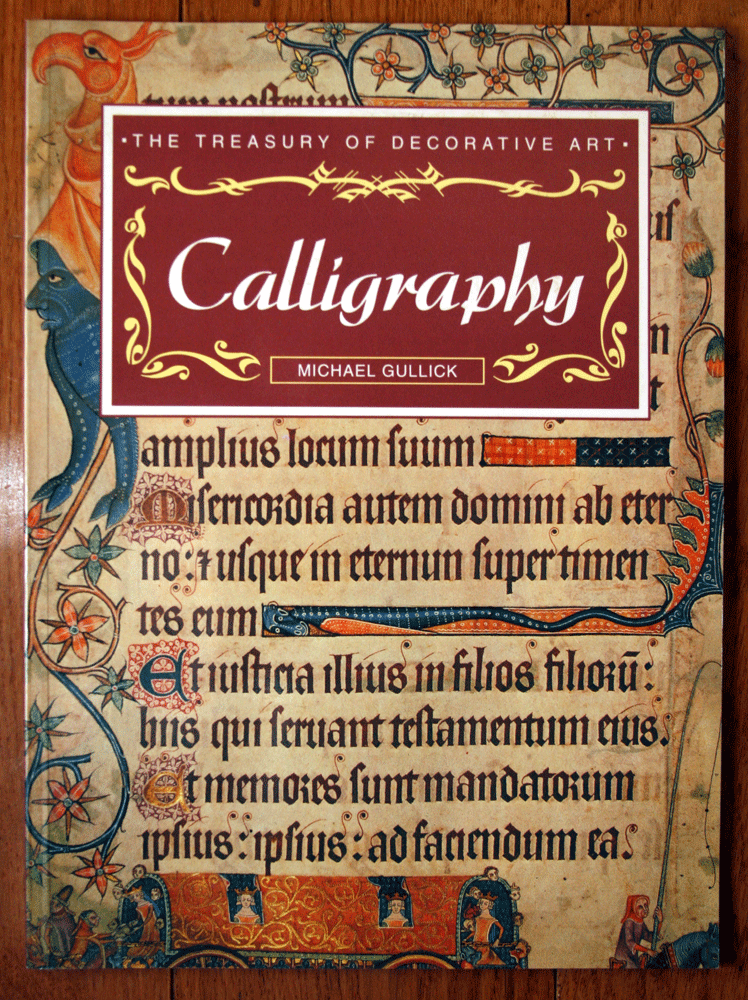 tum nostrum
·THE TREASURY OF DECORATIVE ART·
Calligraphy
MICHAEL GULLICK
amplius locum suum
Misericordia autem domini ab eter
no: ⁊ usque in eternum super timen
tes eum
Et iusticia illius in filios filiorū:
hiis qui seruant testamentum eius.
Et memores sunt mandatorum
ipsius: ipsius: ad faciendum ea.